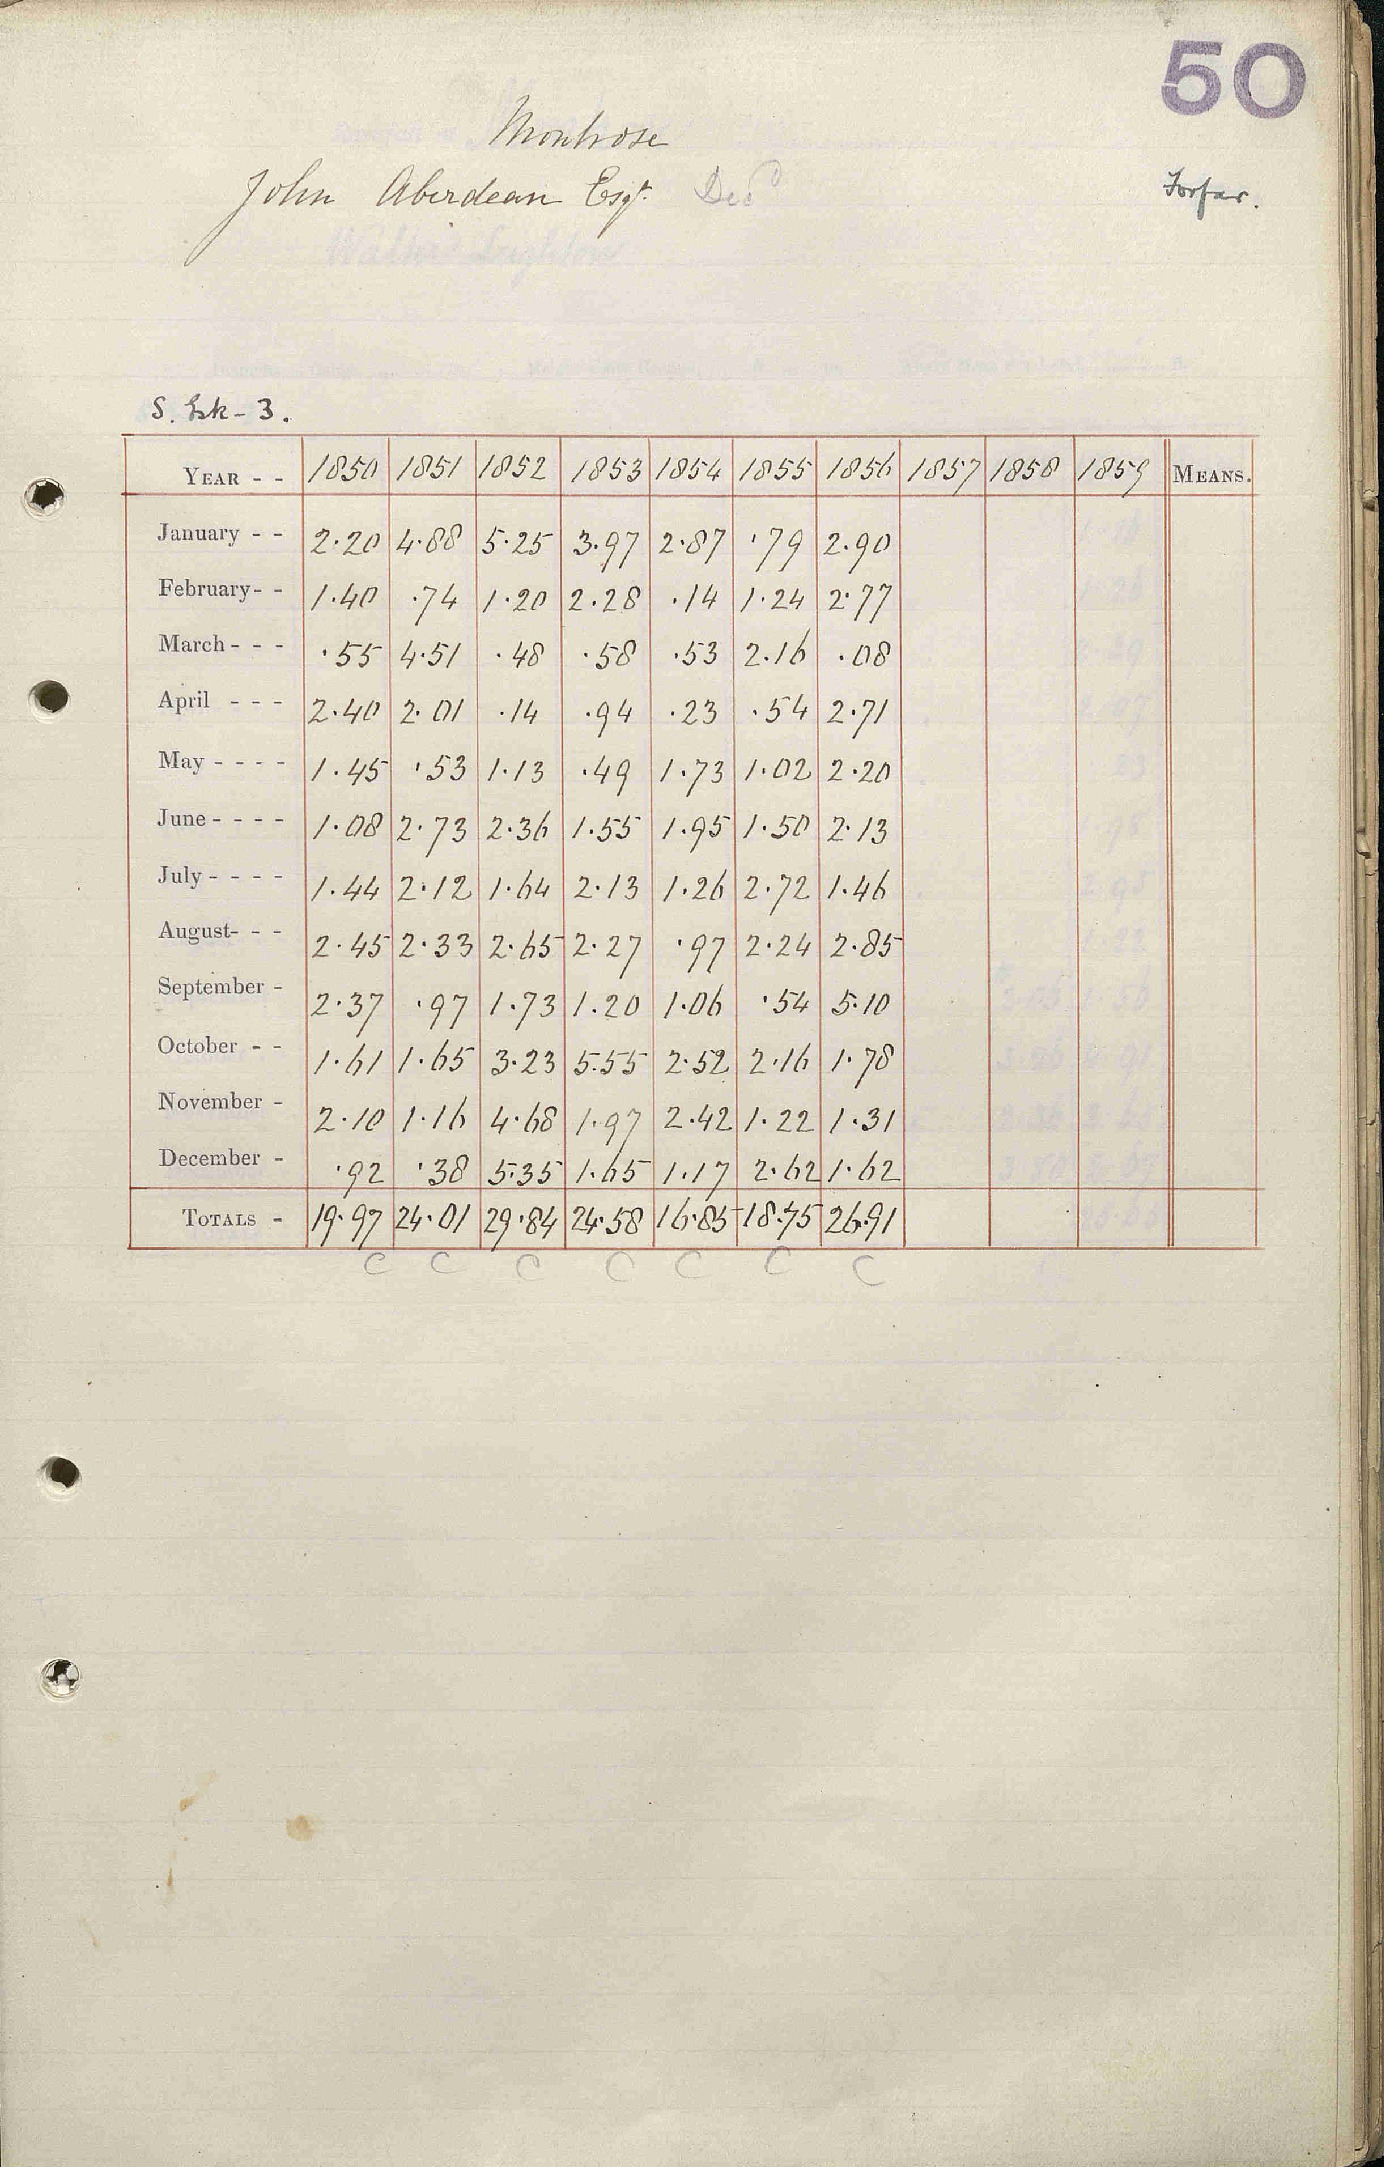 50
Montrose
John Aberdean Esqr. Decd
Forfar.
S. Esk - 3.
YEAR - - 1850 1851 1852 1853 1854 1855 1856 1857 1858 1859 MEANS.
January - - 2.20 4.88 5.25 3.97 2.87 .79 2.90
February - - 1.40 .74 1.20 2.28 .14 1.24 2.77
March - - - .55 4.51 .48 .58 .53 2.16 .08
April - - - 2.40 2.01 .14 .94 .23 .54 2.71
May - - - - 1.45 .53 1.13 .49 1.73 1.02 2.20
June - - - - 1.08 2.73 2.36 1.55 1.95 1.50 2.13
July - - - - 1.44 2.12 1.64 2.13 1.26 2.72 1.46
August - - - 2.45 2.33 2.65 2.27 .97 2.24 2.85
September - 2.37 .97 1.73 1.20 1.06 .54 5.10
October - - 1.61 1.65 3.23 5.55 2.52 2.16 1.78
November - 2.10 1.16 4.68 1.97 2.42 1.22 1.31
December - .92 .38 5.35 1.65 1.17 2.62 1.62
TOTALS - 19.97 24.01 29.84 24.58 16.85 18.75 26.91
C C C C C C C